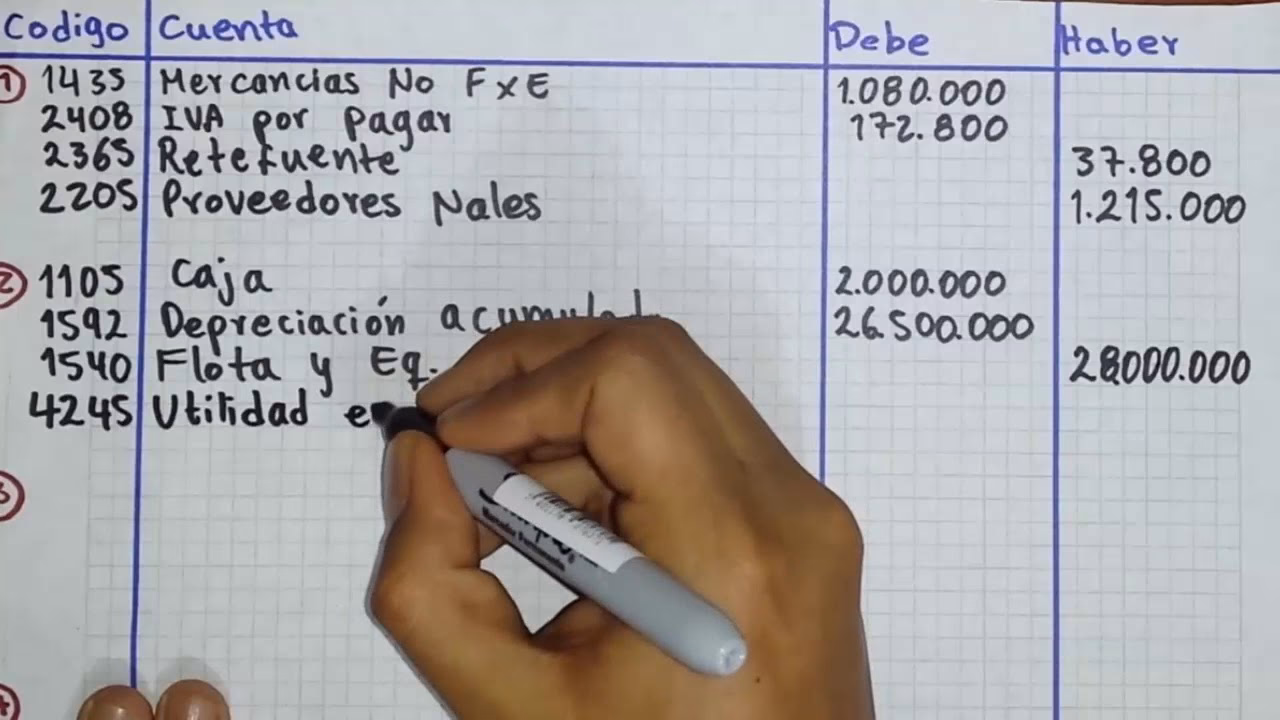 Codigo Cuenta Debe Haber
1 1435 Mercancias No FxE 1.080.000
2408 IVA por pagar 172.800
2365 Retefuente 37.800
2205 Proveedores Nales 1.215.000
2 1105 Caja 2.000.000
1592 Depreciación 26.500.000
1540 Flota y Eq. 28.000.000
4245 Utilidad
3
4